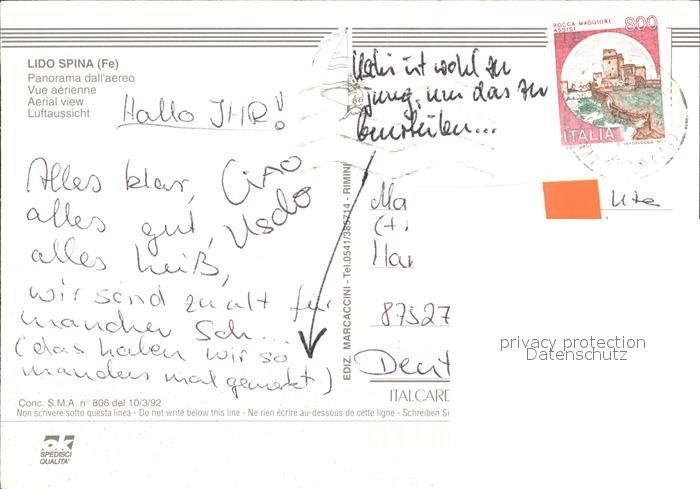 LIDO SPINA (Fe)
Panorama dall'aereo
Vue aérienne
Aerial view
Luftaussicht
Hallo IHR!
Alles klar, Ciao
alles gut,
alles heiß,
wir sind zu alt für
mancher Sch...
(das haben wir so
manches mal gemerkt)
Conc. S.M.A. n° 806 del 10/3/92
Non scrivere sotto questa linea - Do not write below this line - Ne rien écrire au-dessous de cette ligne - Schreiben Si
SPEDISCI
QUALITA'
EDIZ. MARCACCINI - Tel.0541/385714 - RIMINI
ist wohl zu
jung, um das zu
ROCCA MAGGIORE
ASSISI
800
ITALIA
Ma
(+
Har
87527
Deut
ITALCARD
privacy protection
Datenschutz